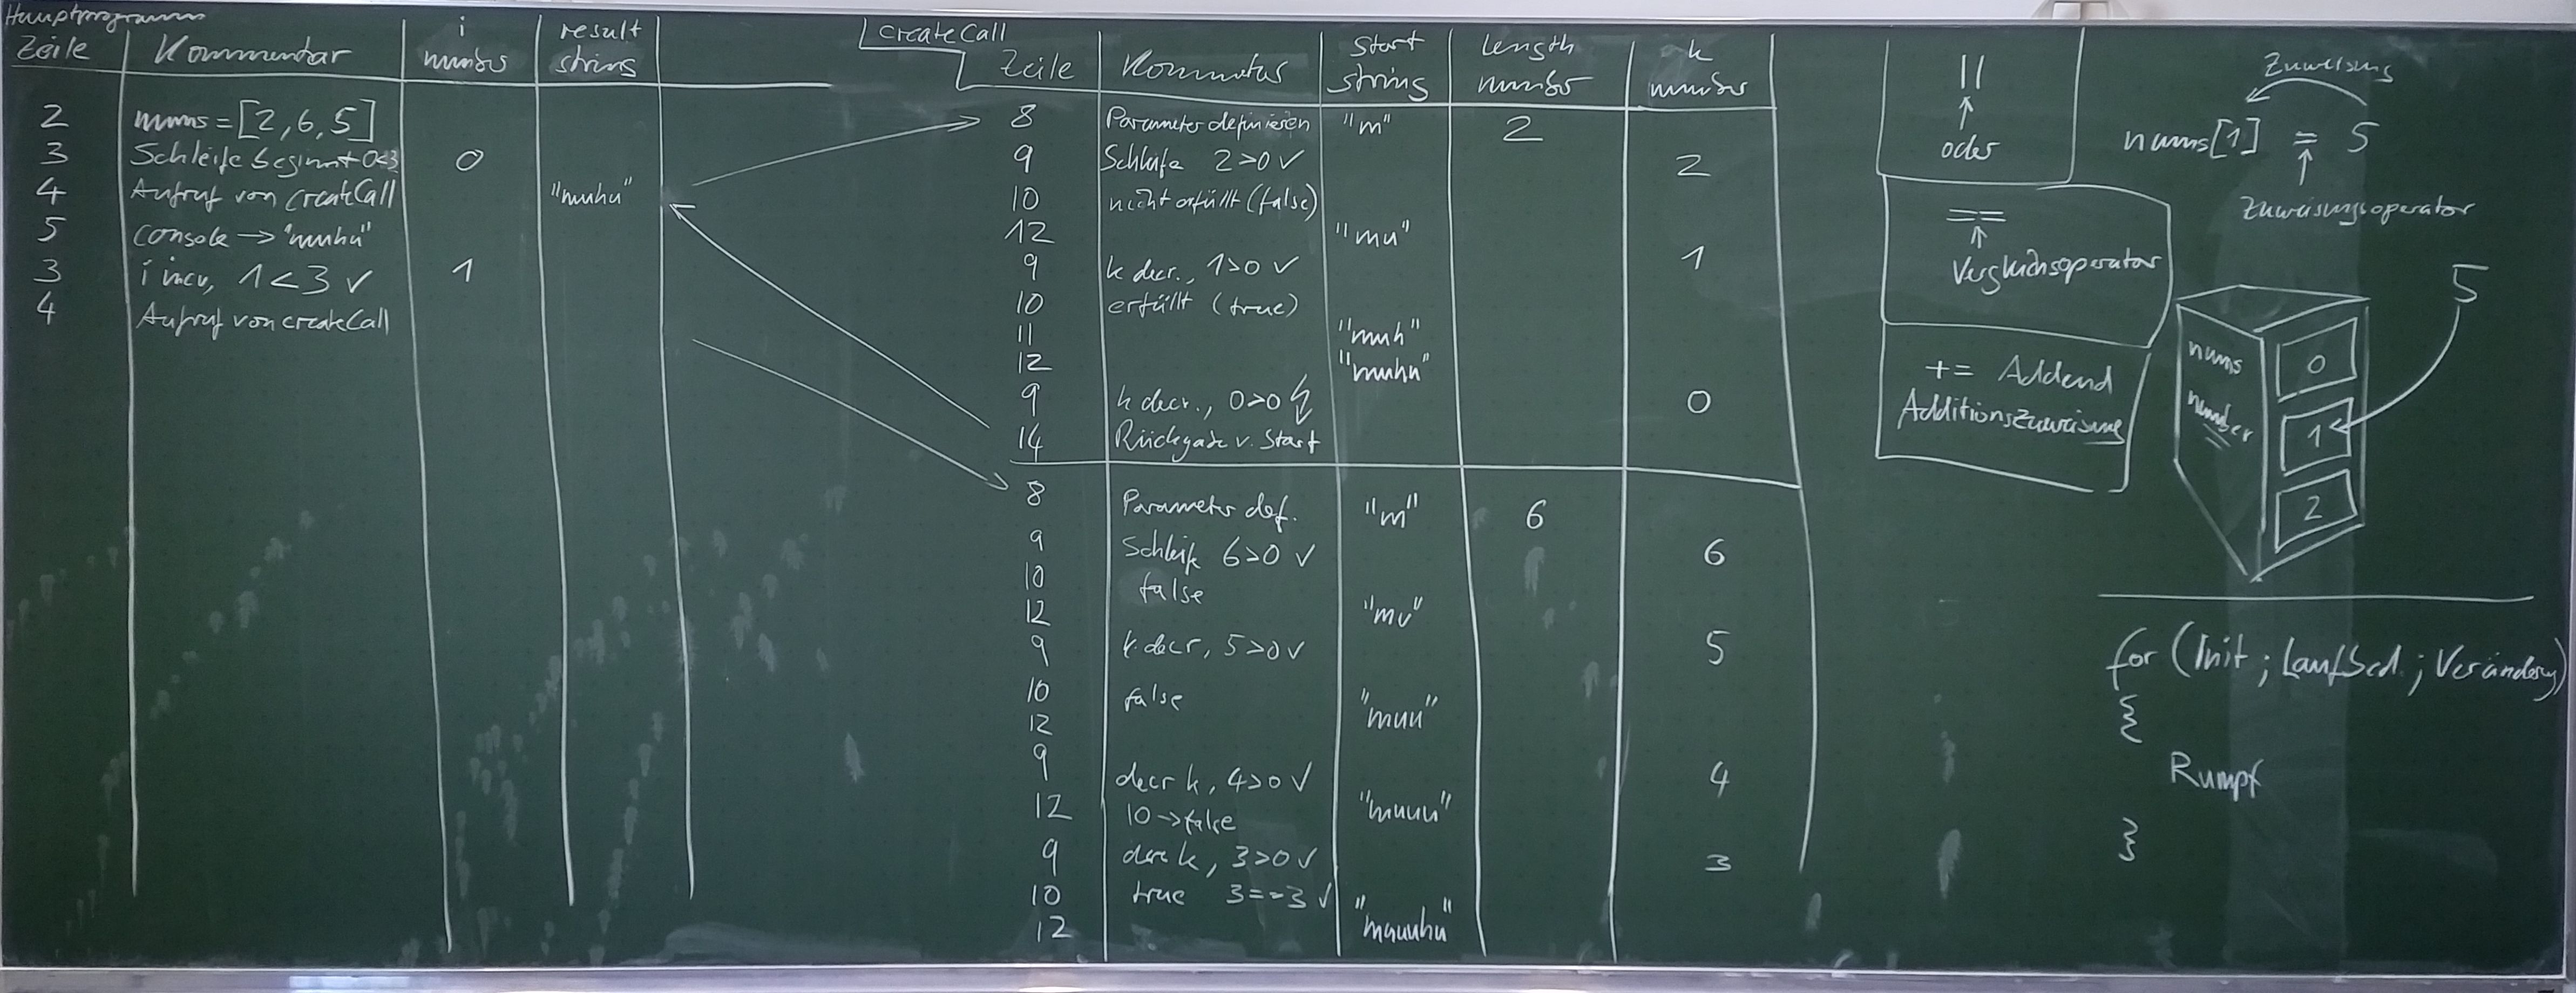 Hauptprogramm
Zeile Kommentar i number result string
2 nums = [2, 6, 5]
3 Schleife beginnt 0<3 0
4 Aufruf von createCall "muhu"
5 console → "muhu"
3 i incr, 1<3 ✓ 1
4 Aufruf von createCall
createCall
Zeile Kommentar start string length number k number
8 Parameter definieren "m" 2
9 Schleife 2>0 ✓ 2
10 nicht erfüllt (false)
12 "mu"
9 k decr., 1>0 ✓ 1
10 erfüllt (true)
11 "muh"
12 "muhu"
9 k decr., 0>0 ↯ 0
14 Rückgabe v. Start
8 Parameter def. "m" 6
9 Schleife 6>0 ✓ 6
10 false
12 "mu"
9 k decr, 5>0 ✓ 5
10 false
12 "muu"
9 decr k, 4>0 ✓ 4
12 10→false "muuu"
9 decr k, 3>0 ✓ 3
10 true 3==3 ✓
12 "muuuhu"
||
↑
oder
==
↑
Vergleichsoperator
+= Addend
Additionszuweisung
Zuweisung
nums[1] = 5
↑
Zuweisungsoperator
5
nums
number
0
1
2
for (Init; Laufbed.; Veränderg)
{
Rumpf
}